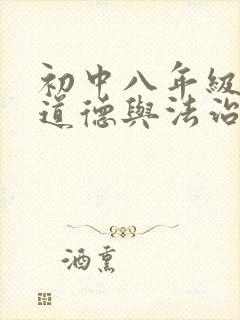 初中八年級
道德與法治
酒熏